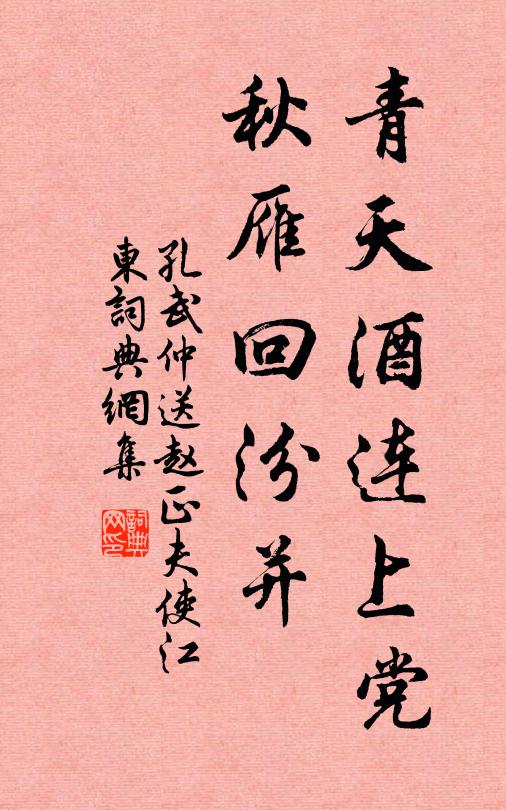 青天酒连上党
秋雁回汾并
孔武仲送赵正夫使江
東詞典網集
詞典网印